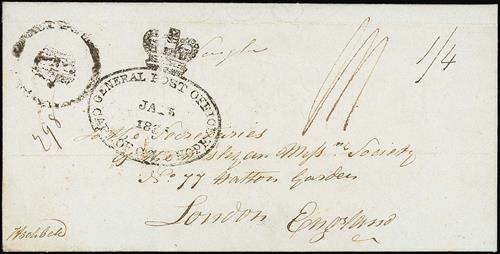 Single
1/4
GENERAL POST OFFICE
JA 5
CAPE OF GOOD HOPE
298
To the Secretaries
of the Wesleyan Missny Society
No 77 Hatton Garden
London England